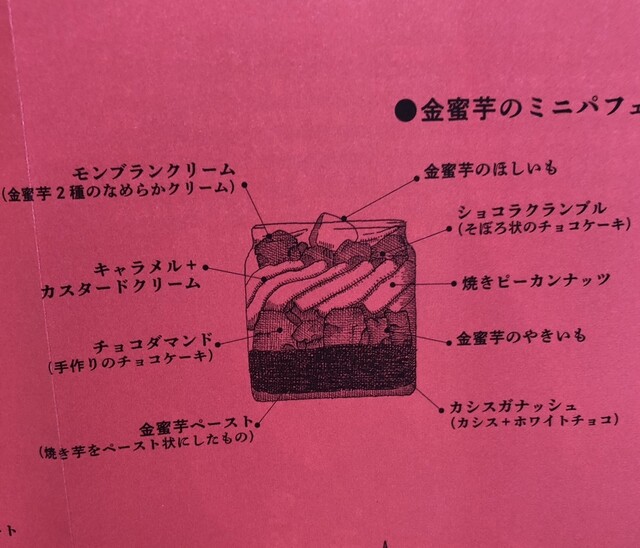 ●金蜜芋のミニパフェ
モンブランクリーム
(金蜜芋2種のなめらかクリーム)
キャラメル+
カスタードクリーム
チョコダマンド
(手作りのチョコケーキ)
金蜜芋ペースト
(焼き芋をペースト状にしたもの)
金蜜芋のほしいも
ショコラクランブル
(そぼろ状のチョコケーキ)
焼きピーカンナッツ
金蜜芋のやきいも
カシスガナッシュ
(カシス+ホワイトチョコ)